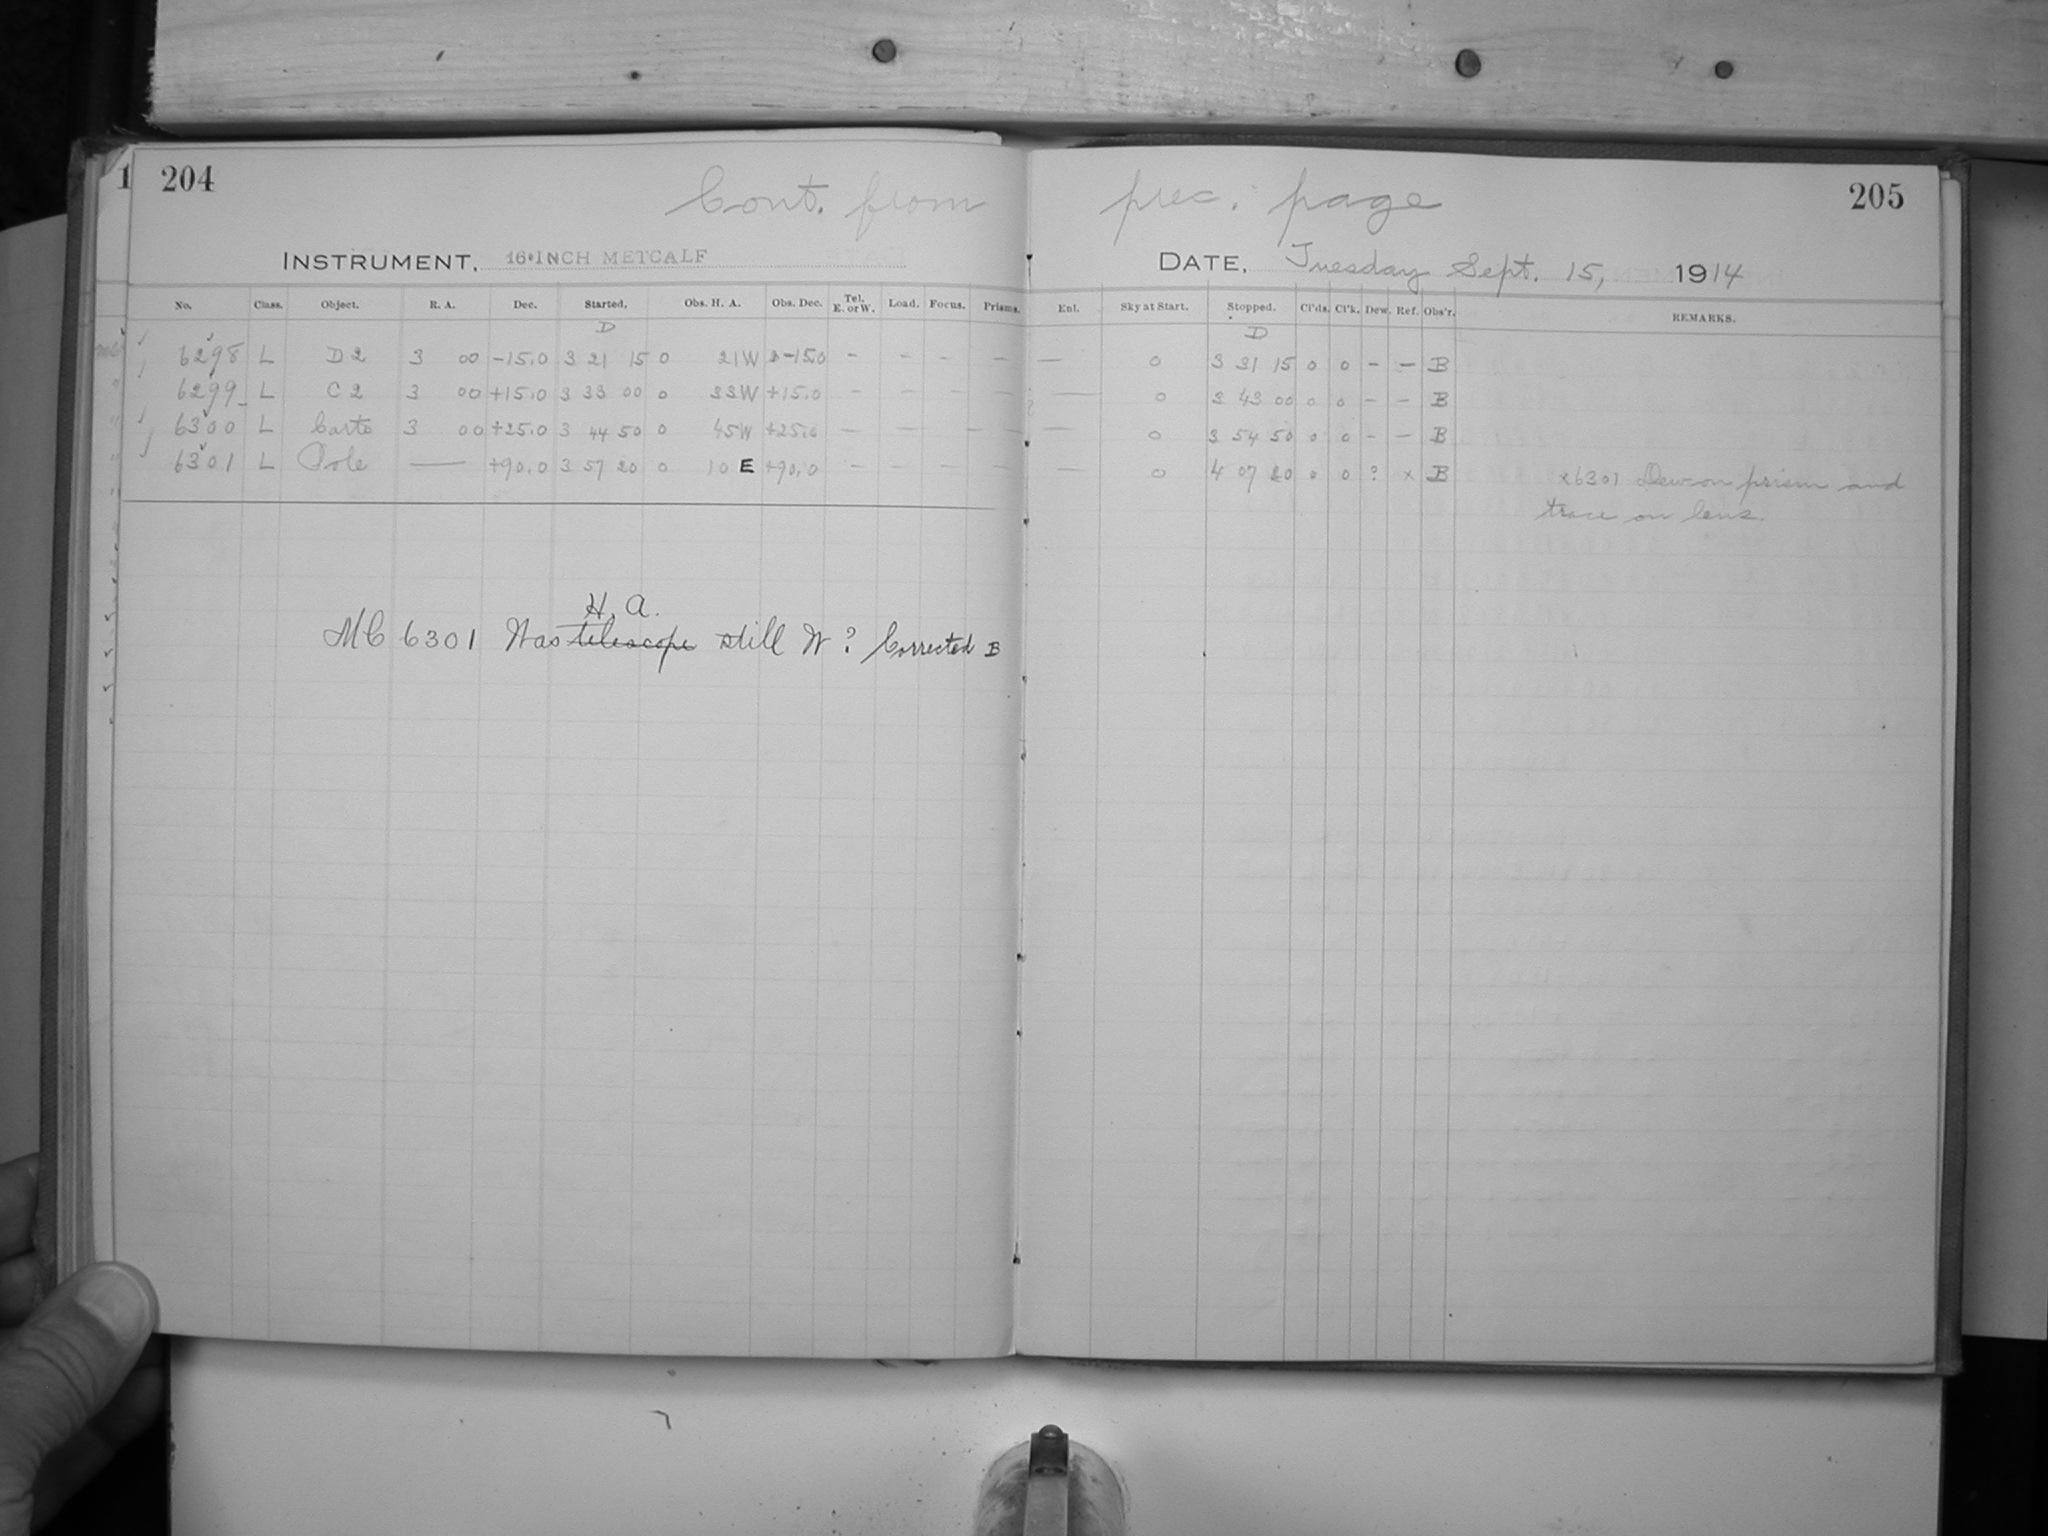 1 204 Cont. from prec. page 205
INSTRUMENT, 16-INCH METCALF DATE, Tuesday Sept. 15, 1914
No. Class. Object. R. A. Dec. Started, Obs. H. A. Obs. Dec. Tel. E. or W. Load. Focus. Prisms. Ent. Sky at Start. Stopped. Cl'ds. Cl'k. Dew. Ref. Obs'r. REMARKS.
D D
6298 L D2 3 00 -15.0 3 21 15 0 21W -15.0 - - - - — 0 3 31 15 0 0 - - B
6299 L C2 3 00 +15.0 3 33 00 0 33W +15.0 - - - - — 0 3 43 00 0 0 - - B
6300 L Carte 3 00 +25.0 3 44 50 0 45W +25.0 - - - - — 0 3 54 50 0 0 - - B
6301 L Pole — +90.0 3 57 20 0 10 E +90.0 - - - - — 0 4 07 20 0 0 ? x B x6301 Dew on prism and
trace on lens.
H. A.
MC 6301 Was telescope still W? Corrected B